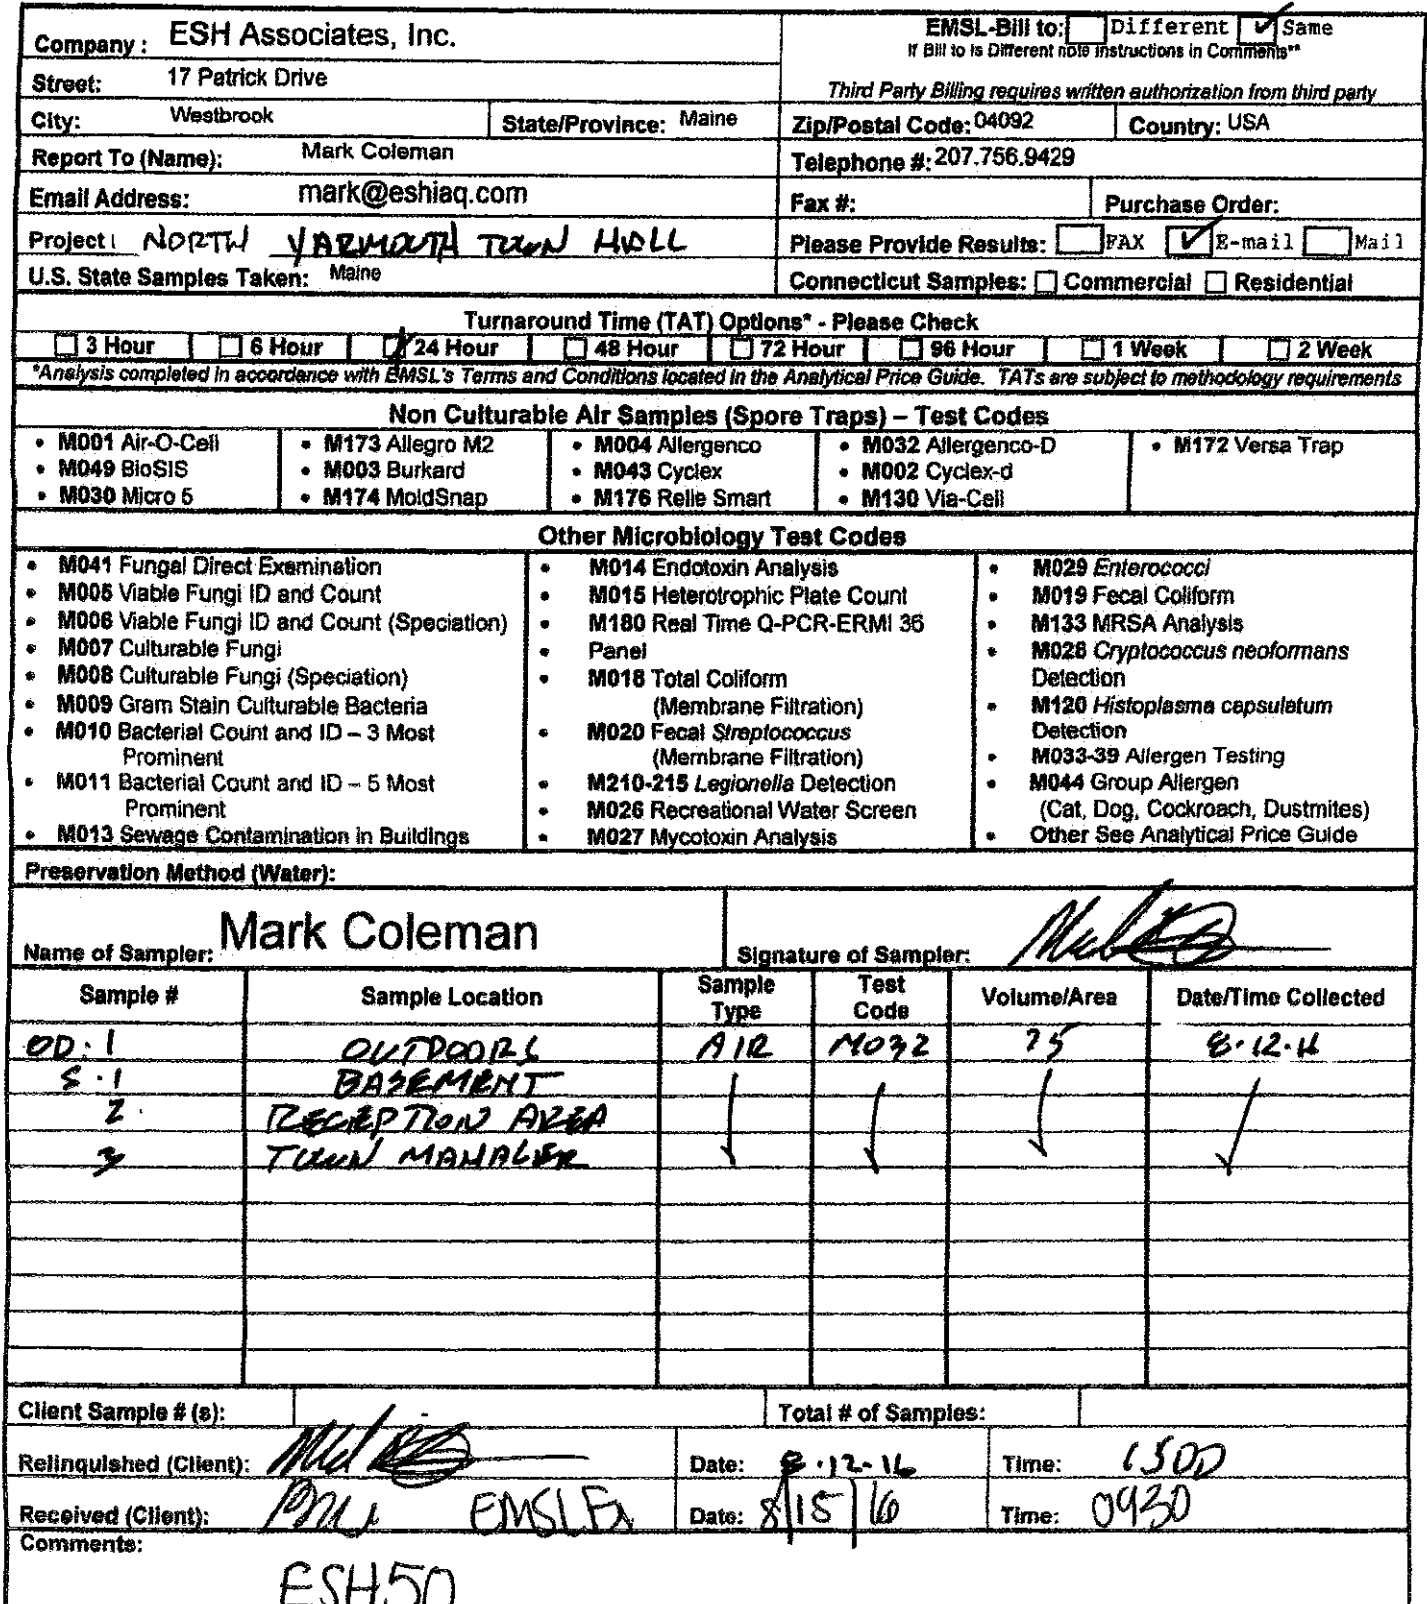 Company: ESH Associates, Inc.
EMSL-Bill to: Different Same
If Bill to is Different note instructions in Comments**
Street: 17 Patrick Drive
Third Party Billing requires written authorization from third party
City: Westbrook State/Province: Maine Zip/Postal Code: 04092 Country: USA
Report To (Name): Mark Coleman Telephone #: 207.756.9429
Email Address: mark@eshiaq.com Fax #: Purchase Order:
Project: NORTH YARMOUTH TOWN HALL Please Provide Results: FAX E-mail Mail
U.S. State Samples Taken: Maine Connecticut Samples: Commercial Residential
Turnaround Time (TAT) Options* - Please Check
3 Hour 6 Hour 24 Hour 48 Hour 72 Hour 96 Hour 1 Week 2 Week
*Analysis completed in accordance with EMSL's Terms and Conditions located in the Analytical Price Guide. TATs are subject to methodology requirements
Non Culturable Air Samples (Spore Traps) – Test Codes
• M001 Air-O-Cell
• M049 BioSIS
• M030 Micro 5
• M173 Allegro M2
• M003 Burkard
• M174 MoldSnap
• M004 Allergenco
• M043 Cyclex
• M176 Relle Smart
• M032 Allergenco-D
• M002 Cyclex-d
• M130 Via-Cell
• M172 Versa Trap
Other Microbiology Test Codes
• M041 Fungal Direct Examination
• M005 Viable Fungi ID and Count
• M006 Viable Fungi ID and Count (Speciation)
• M007 Culturable Fungi
• M008 Culturable Fungi (Speciation)
• M009 Gram Stain Culturable Bacteria
• M010 Bacterial Count and ID – 3 Most
Prominent
• M011 Bacterial Count and ID – 5 Most
Prominent
• M013 Sewage Contamination in Buildings
• M014 Endotoxin Analysis
• M015 Heterotrophic Plate Count
• M180 Real Time Q-PCR-ERMI 36
• Panel
• M018 Total Coliform
(Membrane Filtration)
• M020 Fecal Streptococcus
(Membrane Filtration)
• M210-215 Legionella Detection
• M026 Recreational Water Screen
• M027 Mycotoxin Analysis
• M029 Enterococci
• M019 Fecal Coliform
• M133 MRSA Analysis
• M028 Cryptococcus neoformans
Detection
• M120 Histoplasma capsulatum
Detection
• M033-39 Allergen Testing
• M044 Group Allergen
(Cat, Dog, Cockroach, Dustmites)
• Other See Analytical Price Guide
Preservation Method (Water):
Name of Sampler: Mark Coleman Signature of Sampler:
Sample # Sample Location Sample Type Test Code Volume/Area Date/Time Collected
OD.1 OUTDOORS AIR M032 75 8.12.16
S.1 BASEMENT
2. RECEPTION AREA
3 TOWN MANAGER
Client Sample # (s): Total # of Samples:
Relinquished (Client): Date: 8.12.16 Time: 1500
Received (Client): Date: 8/15/16 Time: 0930
Comments:
ESH50